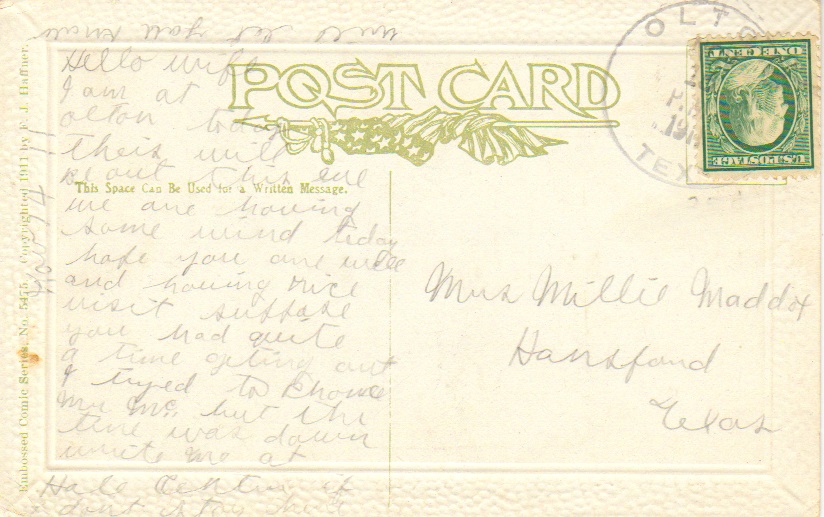 will let you know
Hello wife
I am at
olton today
theis will
be out this eve
we are having
some wind tiday
hope you are well
and having nice
visit suppose
you had quite
a time geting out
I tryed to Phone
Mr Mc, but the
line was down
write me at
Hale Center if
I dont stay here
Nov 14 11
POST CARD
This Space Can Be Used for a Written Message.
Embossed Comic Series, No. 5475. Copyrighted 1911 by F. J. Haffner.
OLTO
P.M
191
TEX
U.S. POSTAGE
ONE CENT
Mrs Millie Maddox
Hansford
Texas